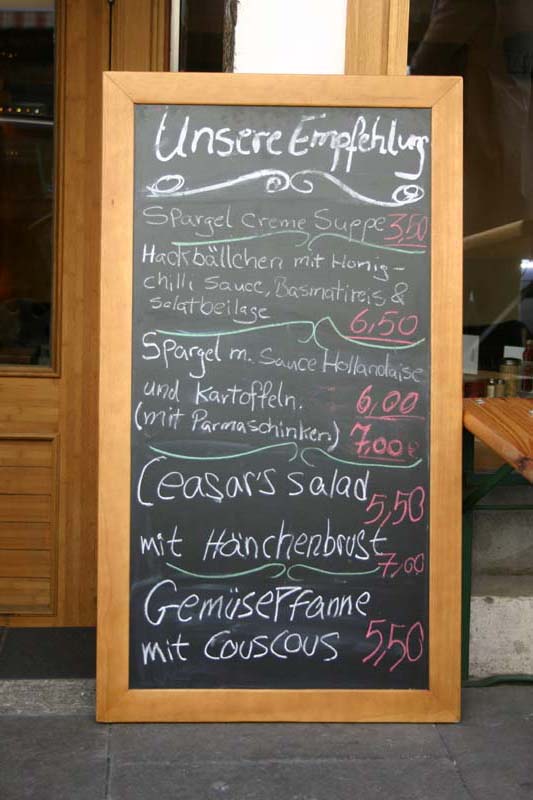 Unsere Empfehlung
Spargel Creme Suppe 3,50
Hackbällchen mit Honig-
chilli Sauce, Basmatireis &
Salatbeilage
6,50
Spargel m. Sauce Hollandaise
und Kartoffeln. 6,00
(mit Parmaschinken) 7,00€
Ceasar's salad
5,50
mit Hänchenbrust
7,00
Gemüsepfanne
mit Couscous 5,50